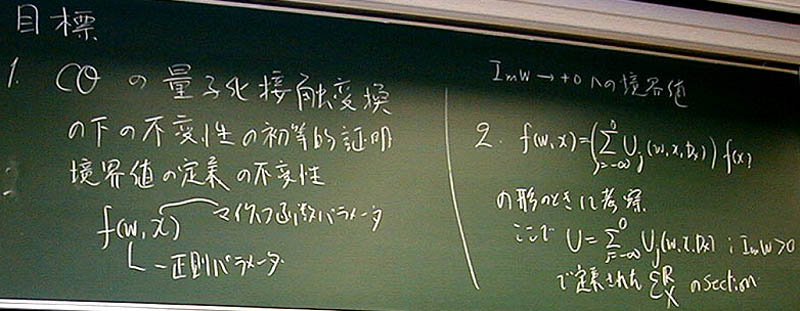 目標
1. COの量子化接触変換
の下の不変性の初等的証明
2 境界値の定義の不変性
f(w,x) マイクロ函数パラメータ
正則パラメータ
Im W → +0 への境界値
2. f(w,x) = (∑_{j=-∞}^{0} U_j(w,x,D_x)) f(x)
の形のときに考察
ここで U = ∑_{j=-∞}^{0} U_j(w,x,D_x) ; Im W > 0
で定義された ℰ^R_X の section